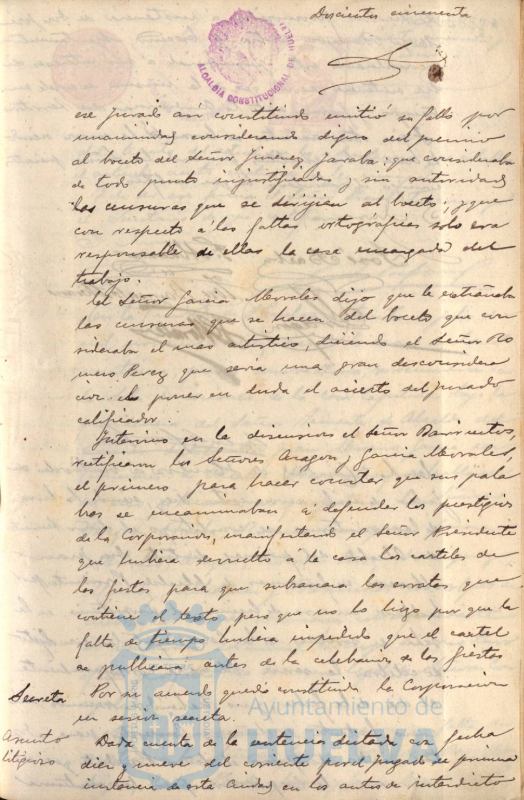 Doscientos cincuenta
ALCALDIA CONSTITUCIONAL DE HUELVA
ese Jurado asi constituido emitió su fallo por
unanimidad considerando digno del premio
al boceto del Señor Jimenez Jaraba: que consideraba
de todo punto injustificadas y sin autoridad
las censuras que se dirijian al boceto; y que
con respecto á las faltas ortográficas solo era
responsable de ellas la casa encargada del
trabajo.
El Señor Garcia Morales dijo que le extrañaba
las censuras que se hacen del boceto que con
sideraba el mas artistico, diciendo el Señor Ro
mero Perez que seria una gran desconsidera
cion el poner en duda el acierto del jurado
calificador.
Intervino en la discusion el Señor Barrientos,
rectificaron los Señores Aragon y Garcia Morales,
el primero para hacer constar que sus pala
bras se encaminaban á defender los prestigios
de la Corporacion, manifestando el Señor Presidente
que hubiera devuelto á la casa los carteles de
las fiestas para que subsanara las erratas que
contiene el texto pero que no lo hizo por que la
falta de tiempo hubiera impedido que el cartel
se publicara antes de la celebracion de las fiestas
Secreta
Por su acuerdo quedó constituida la Corporacion
en sesion secreta.
Asunto
litigioso
Dada cuenta de la sentencia dictada con fecha
diez y nueve del corriente por el juzgado de primera
instancia de esta Ciudad en los autos de interdicto
Ayuntamiento de
HUELVA